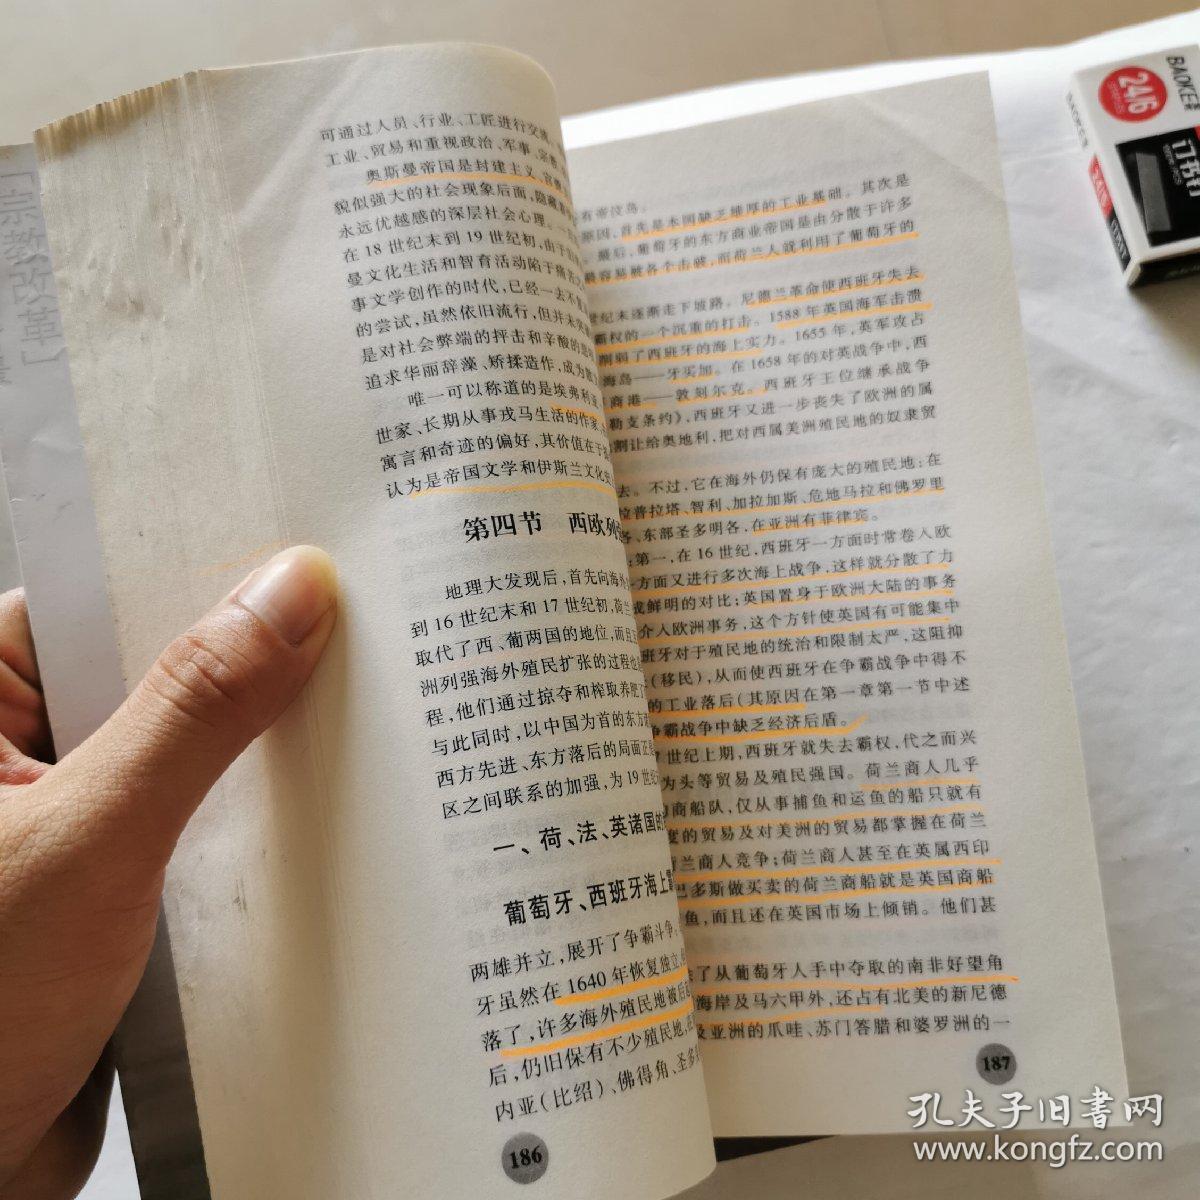 可通过人员、行业、工匠进行交流
工业、贸易和重视政治、军事、宗教
奥斯曼帝国是封建主义、官僚
貌似强大的社会现象后面,隐藏着
永远优越感的深层社会心理。一
在18世纪末到19世纪初,由于
曼文化生活和智育活动陷于痛苦
事文学创作的时代,已经一去不复
的尝试,虽然依旧流行,但并未
是对社会弊端的抨击和辛酸的
追求华丽辞藻、矫揉造作,成为
唯一可以称道的是埃弗利亚
世家、长期从事戎马生活的作家
寓言和奇迹的偏好,其价值在于
认为是帝国文学和伊斯兰文化
第四节 西欧列
地理大发现后,首先向海外
到16世纪末和17世纪初,荷兰
取代了西、葡两国的地位,而且
洲列强海外殖民扩张的过程也
程,他们通过掠夺和榨取养肥了
与此同时,以中国为首的东方
西方先进、东方落后的局面正
区之间联系的加强,为19世纪
一、荷、法、英诸国的
葡萄牙、西班牙海上霸
两雄并立,展开了争霸斗争。
牙虽然在1640年恢复独立,
落了,许多海外殖民地被后起
后,仍旧保有不少殖民地,在
内亚(比绍)、佛得角、圣多
186
有帝汶岛。
原因,首先是本国缺乏雄厚的工业基础。其次是
。最后,葡萄牙的东方商业帝国是由分散于许多
最容易被各个击破,而荷兰人就利用了葡萄牙的
世纪末逐渐走下坡路。尼德兰革命使西班牙失去
霸权的一个沉重的打击。1588年英国海军击溃
削弱了西班牙的海上实力。1655年,英军攻占
海岛——牙买加。在1658年的对英战争中,西
商港——敦刻尔克。西班牙王位继承战争
勒支条约》,西班牙又进一步丧失了欧洲的属
割让给奥地利,把对西属美洲殖民地的奴隶贸
去。不过,它在海外仍保有庞大的殖民地:在
拉普拉塔、智利、加拉加斯、危地马拉和佛罗里
各、东部圣多明各,在亚洲有菲律宾。
:第一,在16世纪,西班牙一方面时常卷入欧
一方面又进行多次海上战争,这样就分散了力
成鲜明的对比;英国置身于欧洲大陆的事务
介入欧洲事务,这个方针使英国有可能集中
班牙对于殖民地的统治和限制太严,这阻抑
(移民),从而使西班牙在争霸战争中得不
的工业落后(其原因在第一章第一节中述
争霸战争中缺乏经济后盾。
7世纪上期,西班牙就失去霸权,代之而兴
为头等贸易及殖民强国。荷兰商人几乎
的商船队,仅从事捕鱼和运鱼的船只就有
度的贸易及对美洲的贸易都掌握在荷兰
荷兰商人竞争;荷兰商人甚至在英属西印
巴多斯做买卖的荷兰商船就是英国商船
鱼,而且还在英国市场上倾销。他们甚
除了从葡萄牙人手中夺取的南非好望角
海岸及马六甲外,还占有北美的新尼德
及亚洲的爪哇、苏门答腊和婆罗洲的一
187
[宗教改革]
BAOKE
24/6
订书针
孔夫子旧书网
www.kongfz.com